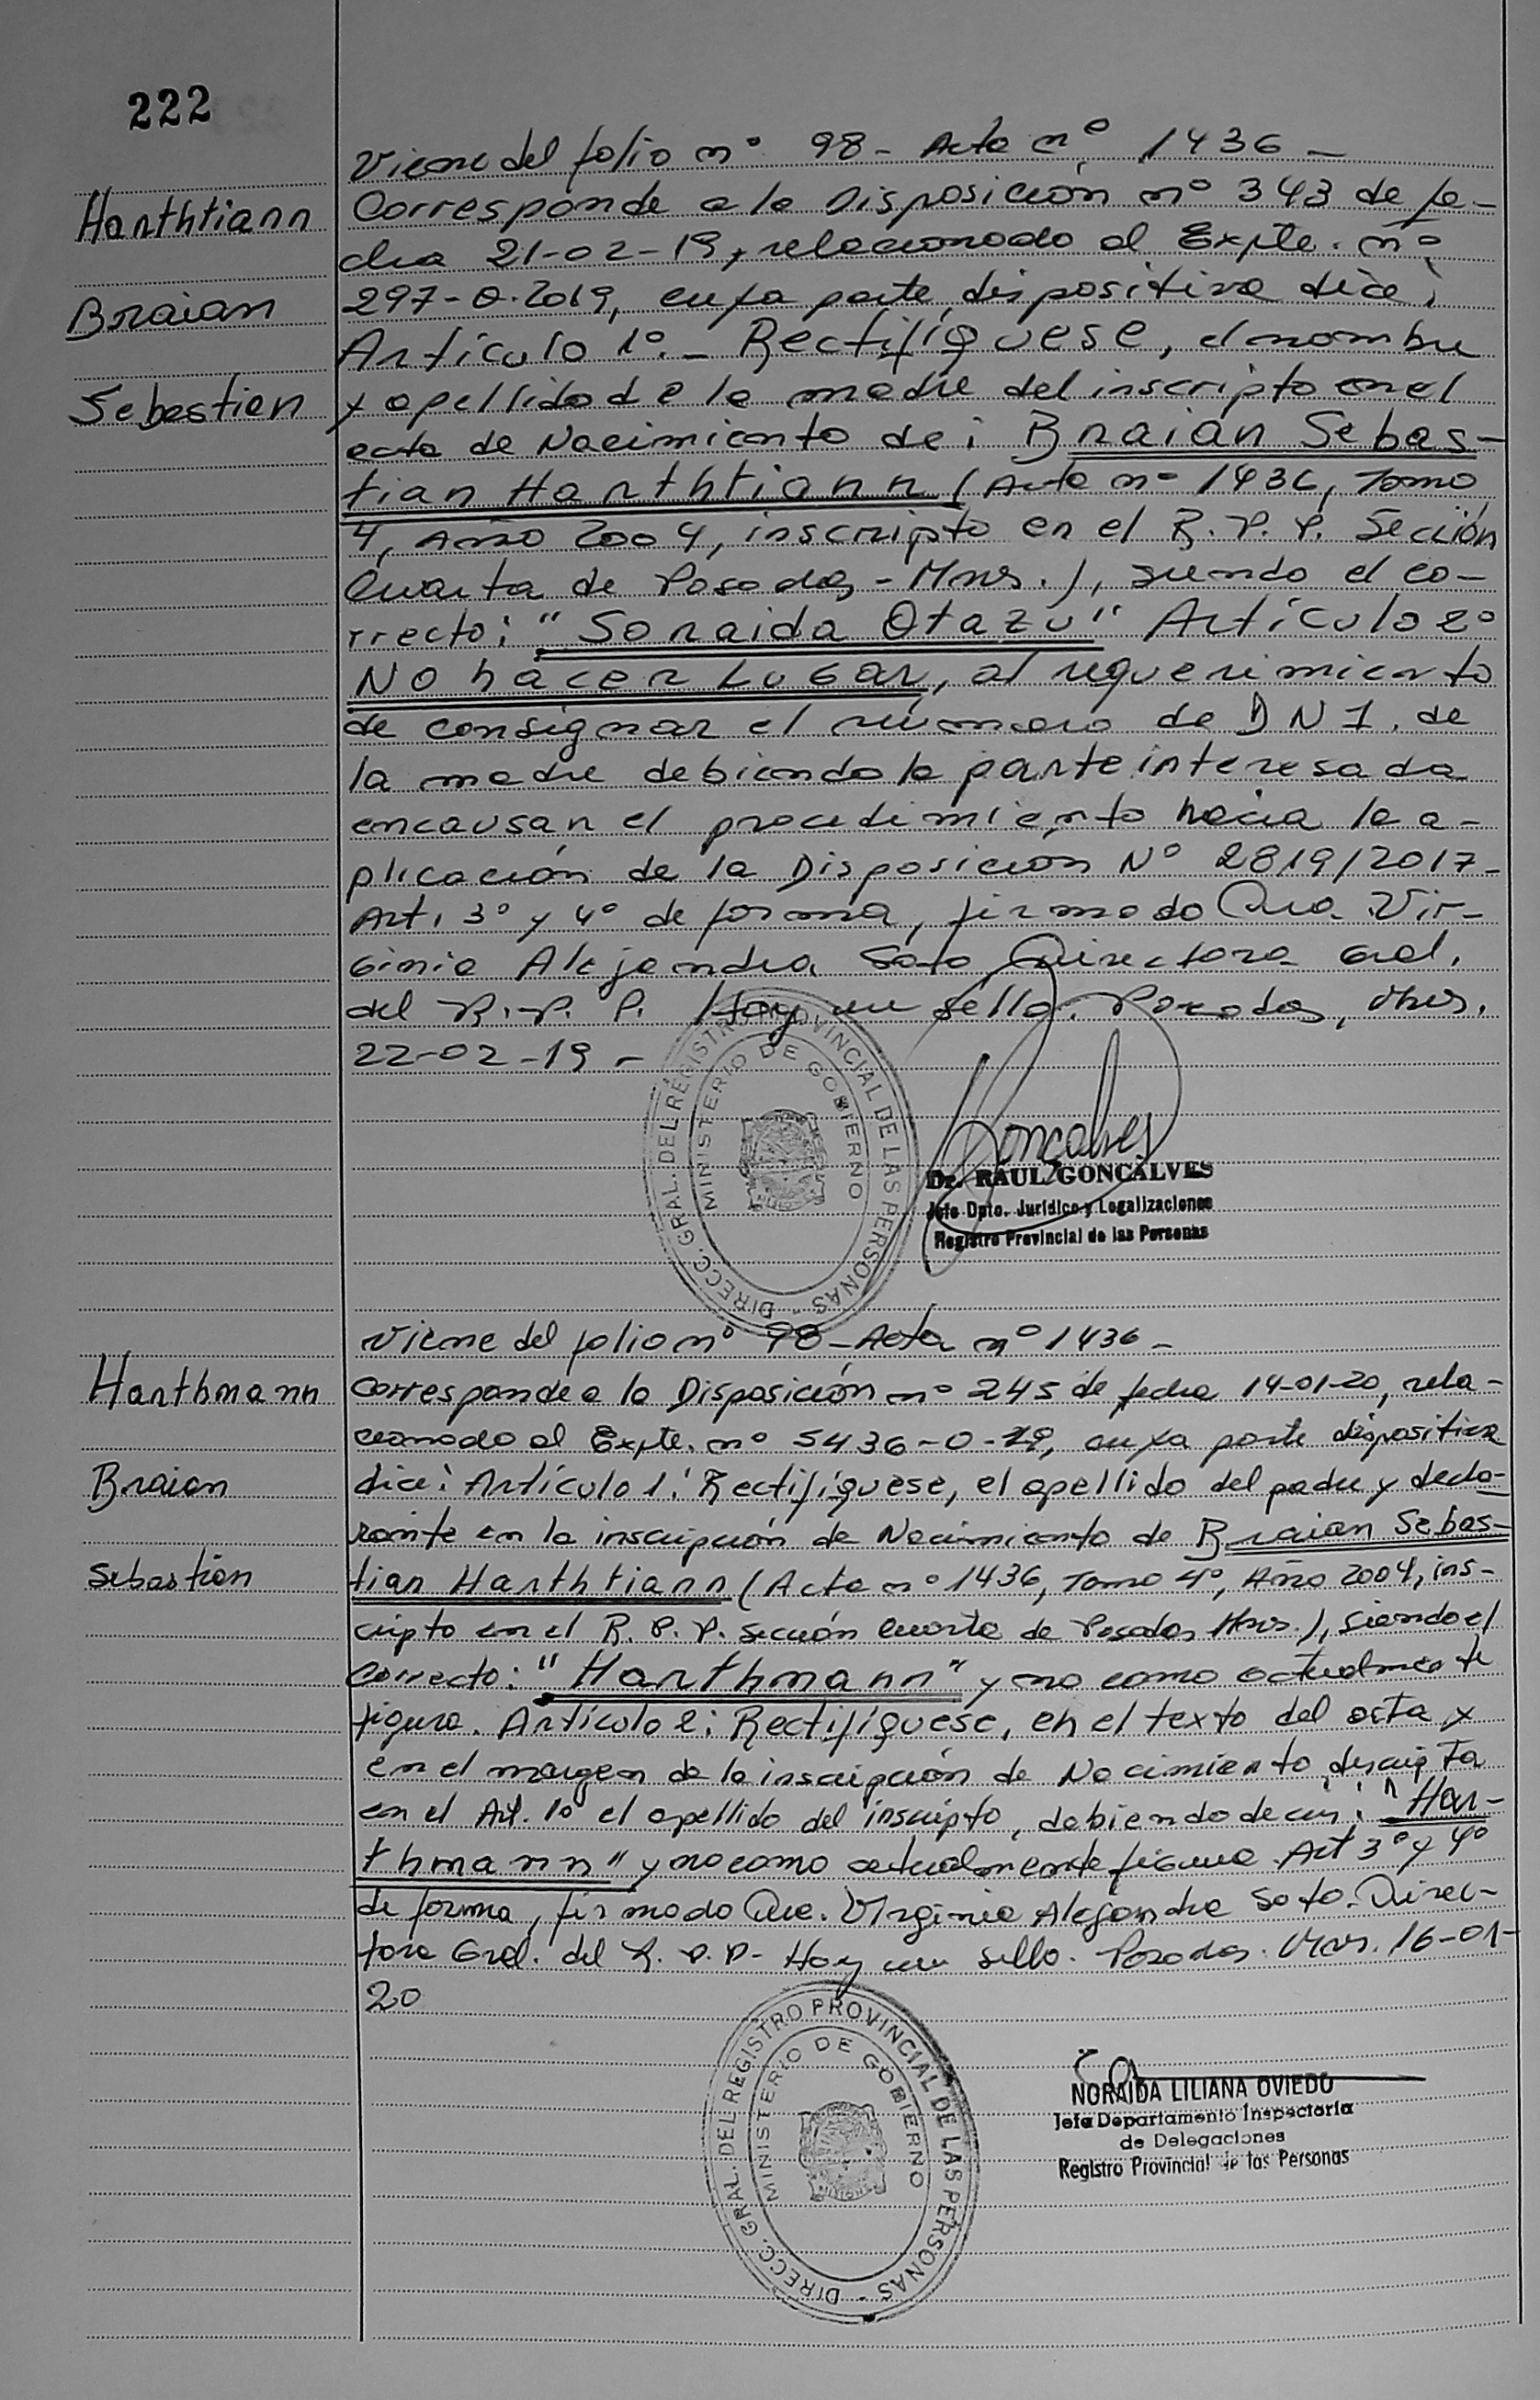 222
Viene del folio nº 98 - Acta nº 1436 -
Harthtiann
Corresponde a la Disposición nº 343 de fe-
cha 21-02-19, relacionado al Expte. nº
Braian
297-O-2019, cuya parte dispositiva dice:
Artículo 1º.- Rectifíquese, el nombre
Sebastian
y apellido de la madre del inscripto en el
acta de Nacimiento de: Braian Sebas-
tian Harthtiann (Acta nº 1436, Tomo
4, Año 2004, inscripto en el R.P.P. Sección
Cuarta de Posadas - Mnes.), siendo el co-
rrecto: "Soraida Otazu" Artículo 2º
No hacer Lugar, al requerimiento
de consignar el número de DNI. de
la madre debiendo la parte interesada
encausar el procedimiento hacia la a-
plicación de la Disposición Nº 2819/2017-
Art. 3º y 4º de forma, firmado Dra. Vir-
ginia Alejandra Soto Directora Gral.
del R.P.P. Hay un sello. Posadas, Mnes.
22-02-19 -
DIRECC. GRAL. DEL REGISTRO PROVINCIAL DE LAS PERSONAS -
MINISTERIO DE GOBIERNO
Goncalves
Dr. RAUL GONCALVES
Jefe Dpto. Jurídico y Legalizaciones
Registro Provincial de las Personas
Viene del folio nº 98 - Acta nº 1436 -
Harthmann
Corresponde a la Disposición nº 245 de fecha 14-01-20, rela-
cionado al Expte. nº 5436-O-19, cuya parte dispositiva
Braian
dice: Artículo 1: Rectifíquese, el apellido del padre y decla-
rante en la inscripción de Nacimiento de Braian Sebas-
Sebastián
tian Harthtiann (Acta nº 1436, Tomo 4º, Año 2004, ins-
cripto en el R.P.P. Sección Cuarta de Posadas Mnes.), siendo el
correcto: "Harthmann" y no como actualmente
figura. Artículo 2: Rectifíquese, en el texto del acta y
en el margen de la inscripción de Nacimiento descripta
en el Art. 1º el apellido del inscripto, debiendo decir: "Har-
thmann" y no como actualmente figura. Art 3º y 4º
de forma, firmado Dra. Virginia Alejandra Soto. Direc-
tora Gral. del R.P.P- Hay un sello. Posadas. Mnes. 16-01-
20
DIRECC. GRAL. DEL REGISTRO PROVINCIAL DE LAS PERSONAS -
MINISTERIO DE GOBIERNO
MISIONES
NORAIDA LILIANA OVIEDO
Jefa Departamento Inspectoría
de Delegaciones
Registro Provincial de las Personas